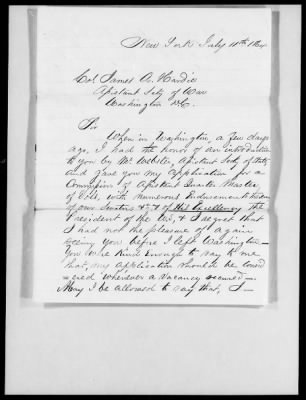 New York July 11th 1864
Col James A. Hardie
Assistant Secty of War
Washington D.C.
Sir
When in Washington, a few days
ago, I had the honor of an introduction
to you by Mr Webster, Assistant Secty of State
and gave you my application for a
Commission of Assistant Quarter Master
of Vols, with numerous Endorsements
of our Senators &c & of His Excellency the
President of the U.S., & I regret that
I had not the pleasure of again
seeing you before I left Washington—
You were kind enough to say to me
that, my application should be
wherever a vacancy occured—
May I be allowed to say that, I—